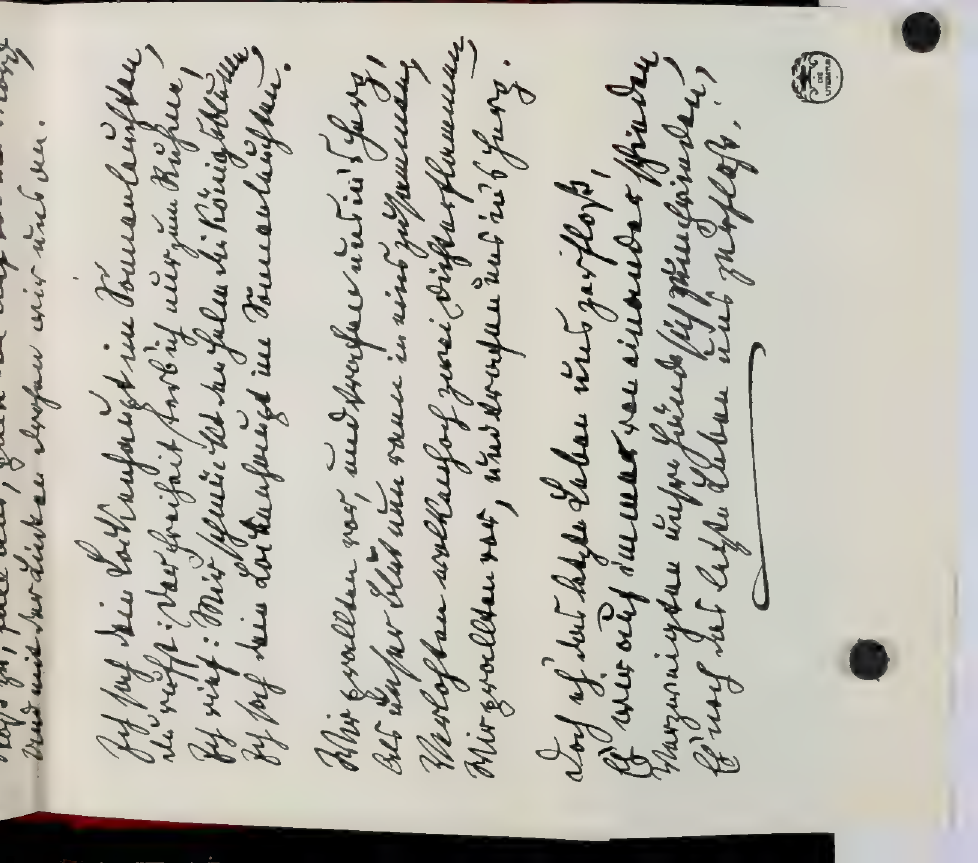 Und mit der Linken drohen wir uns an.
Ich sah dein Lockenhaupt im Sonnenleuchten,
Du riefst: Der Freiheit sterb ich nur zum Ruhme,
Ich rief: Mir schmückt den Helm die Königsblume.
Ich sah dein Lockenhaupt im Sonneleuchten.
Wir prallten vor, und trafen uns in's Herz,
Als unser Blut nun rann in eins zusammen,
wolkenhoch zwei Dichterflammen,
Wir prallten vor, und trafen uns ins Herz.
Doch eh' das letzte Leben uns zerfloß,
Eh' wir auf immer von einander schieden
Verzweigten unsre Hände sich zum Frieden,
Eh' noch das letzte Leben uns zerfloß.
DIE
LITERATUR